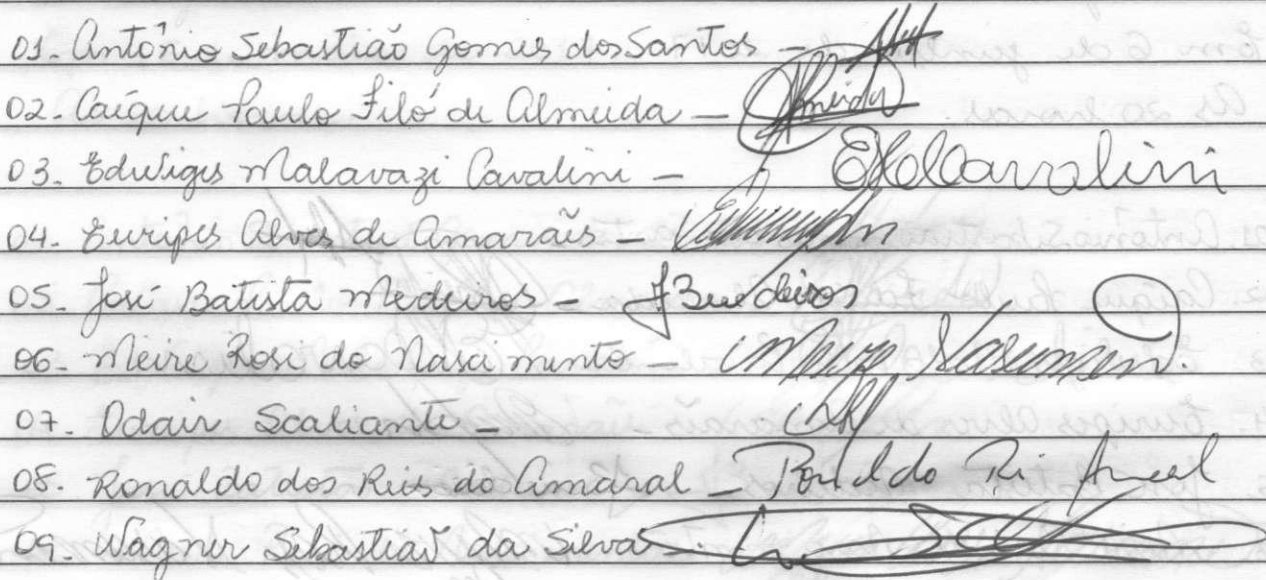 01. Antônio Sebastião Gomes dos Santos -
02. Caíque Paulo Filó de Almeida - Almeida
03. Edwiges Malavazi Cavalini - Cavalini
04. Euripes Alves de Amarães -
05. José Batista Medeiros - JBMedeiros
06. Meire Rose do Nascimento -
07. Odair Scaliante -
08. Ronaldo dos Reis do Amaral - Ronaldo
09. Wagner Sebastião da Silva -